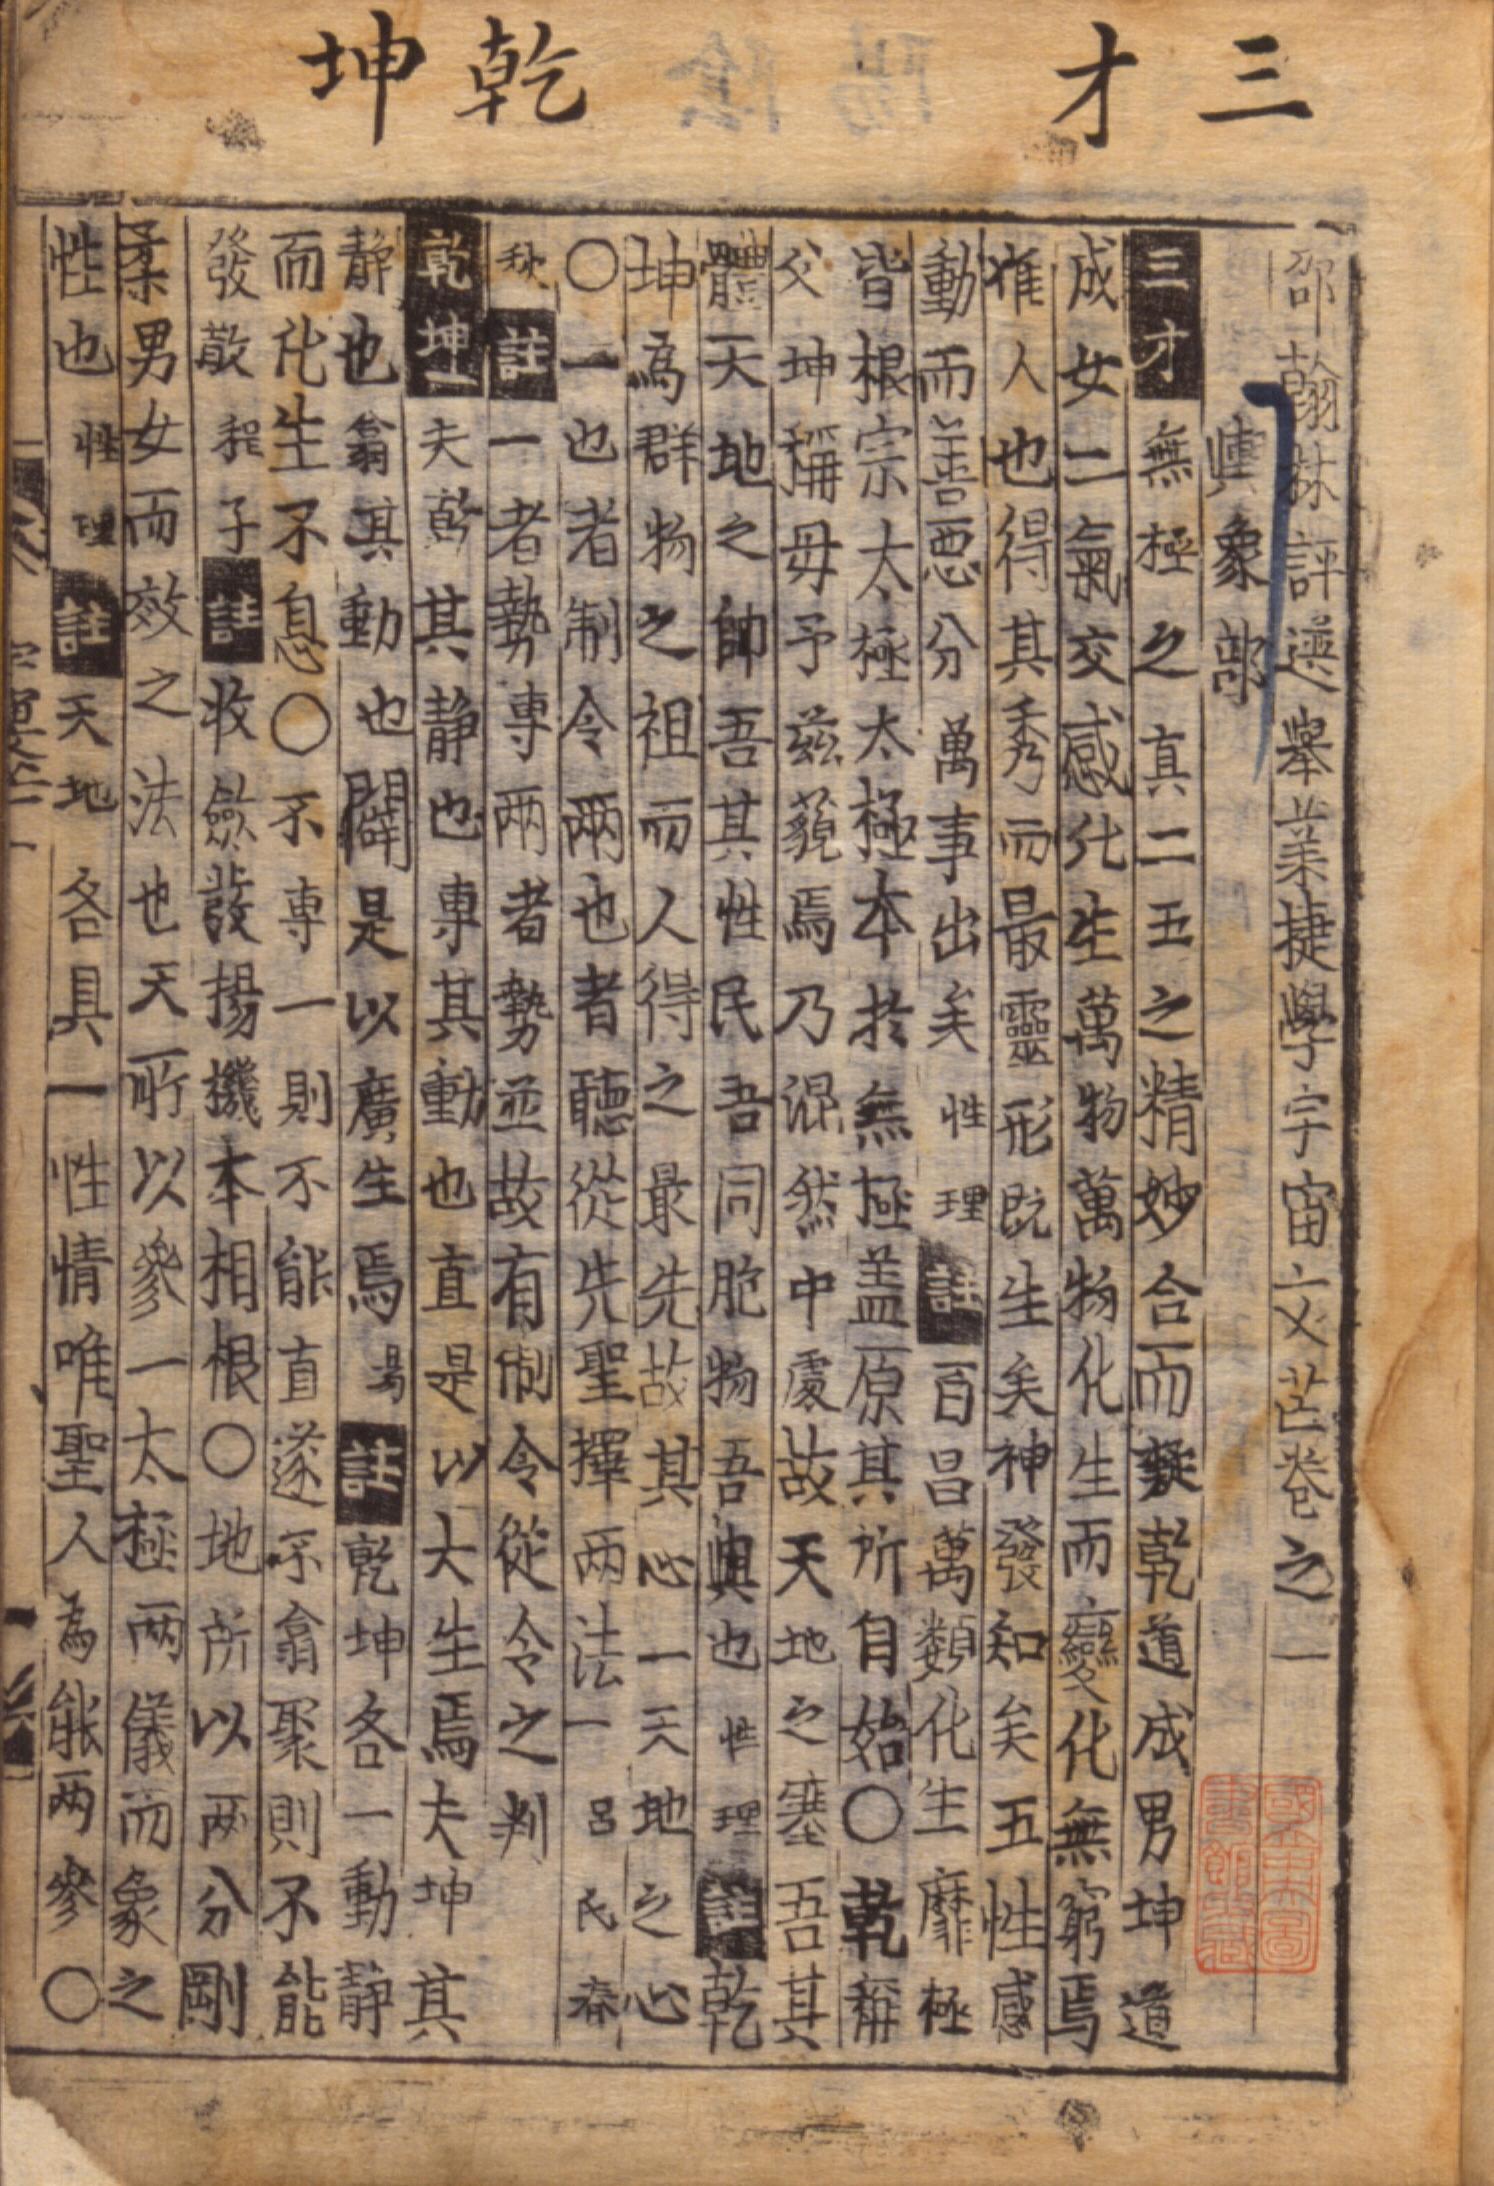 三才
乾坤
邵翰林評選舉業捷學宇宙文芒卷之一
輿象部
三才 無極之真二五之精妙合而凝乾道成男坤道
成女二氣交感化生萬物萬物化生而變化無窮焉
惟人也得其秀而最靈形既生矣神發知矣五性感
動而善惡分萬事出矣 性理 註 百昌萬類化生靡極
皆根宗太極太極本於無極盖原其所自始〇乾稱
父坤稱母予茲藐焉乃混然中處故天地之塞吾其
體天地之帥吾其性民吾同胞物吾與也 性理 註 乾
坤爲群物之祖而人得之最先故其心一天地之心
〇一也者制令兩也者聽從先聖擇兩法一 呂氏春
秋 註 一者勢專兩者勢並故有制令從令之判
乾坤 夫乾其静也專其動也直是以大生焉夫坤其
静也翕其動也闢是以廣生焉 易 註 乾坤各一動静
而化生不息〇不專一則不能直遂不翕聚則不能
發散 程子 註 收歛發揚機本相根〇地所以兩分剛
柔男女而效之法也天所以參一太極兩儀而象之
性也 性理 註 天地各具一性情唯聖人為能兩參〇